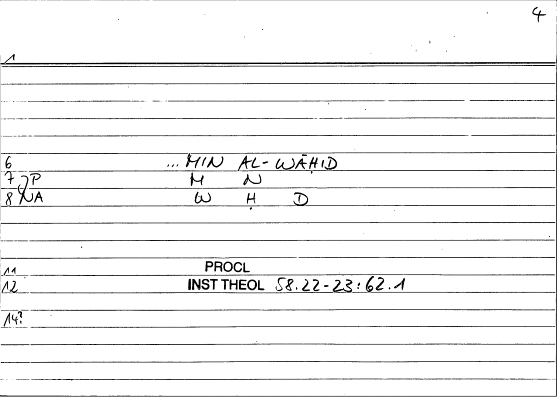 4
1
6 ... MIN AL-WĀḤID
7 P M N
8 NA W Ḥ D
11 PROCL
12 INST THEOL 58.22-23:62.1
14?